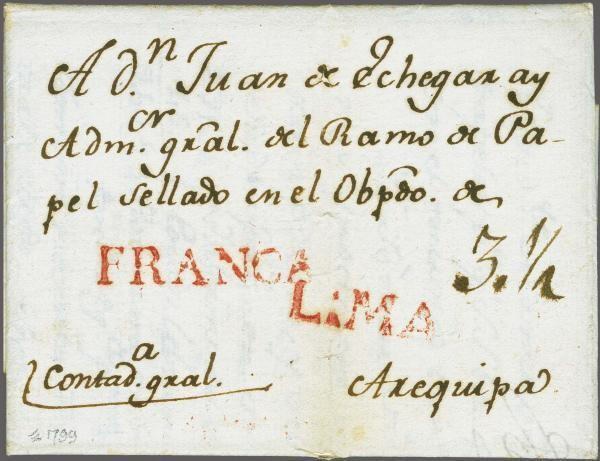 A D.n Juan de Echegaray
Adm.or gral. del Ramo de Pa-
pel Sellado en el Obpdo. de
FRANCA
LIMA
3.½
Contad.a gral.
Arequipa
1799